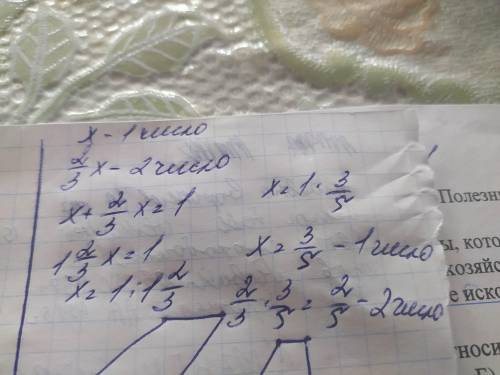 x - 1 число
2/3 x - 2 число
x + 2/3 x = 1
1 2/3 x = 1
x = 1 : 1 2/3
x = 1 · 3/5
x = 3/5 - 1 число
2/3 · 3/5 = 2/5 - 2 число
Полезн
ы, кото
хозяйс
е иско